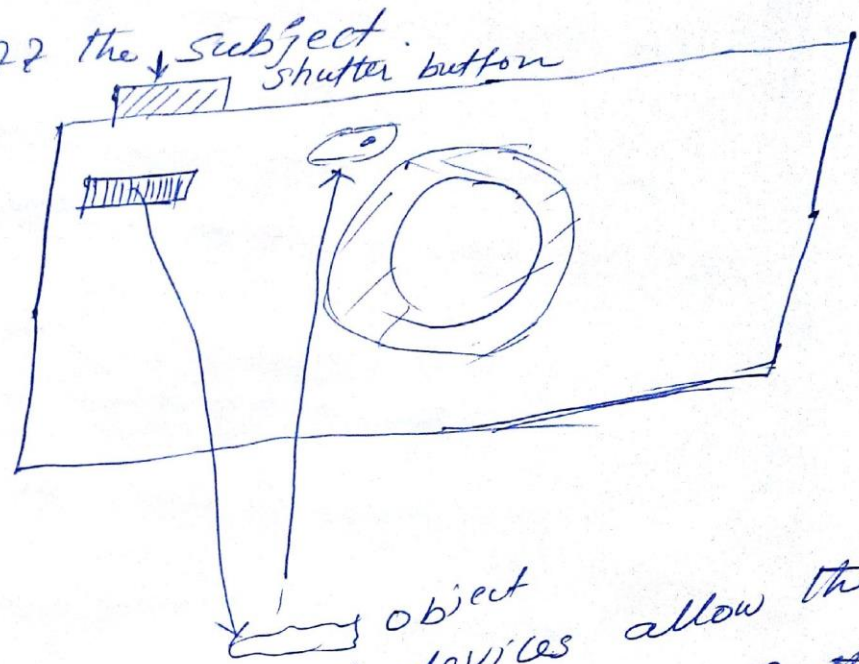 the subject.
shutter button
object
devices allow th